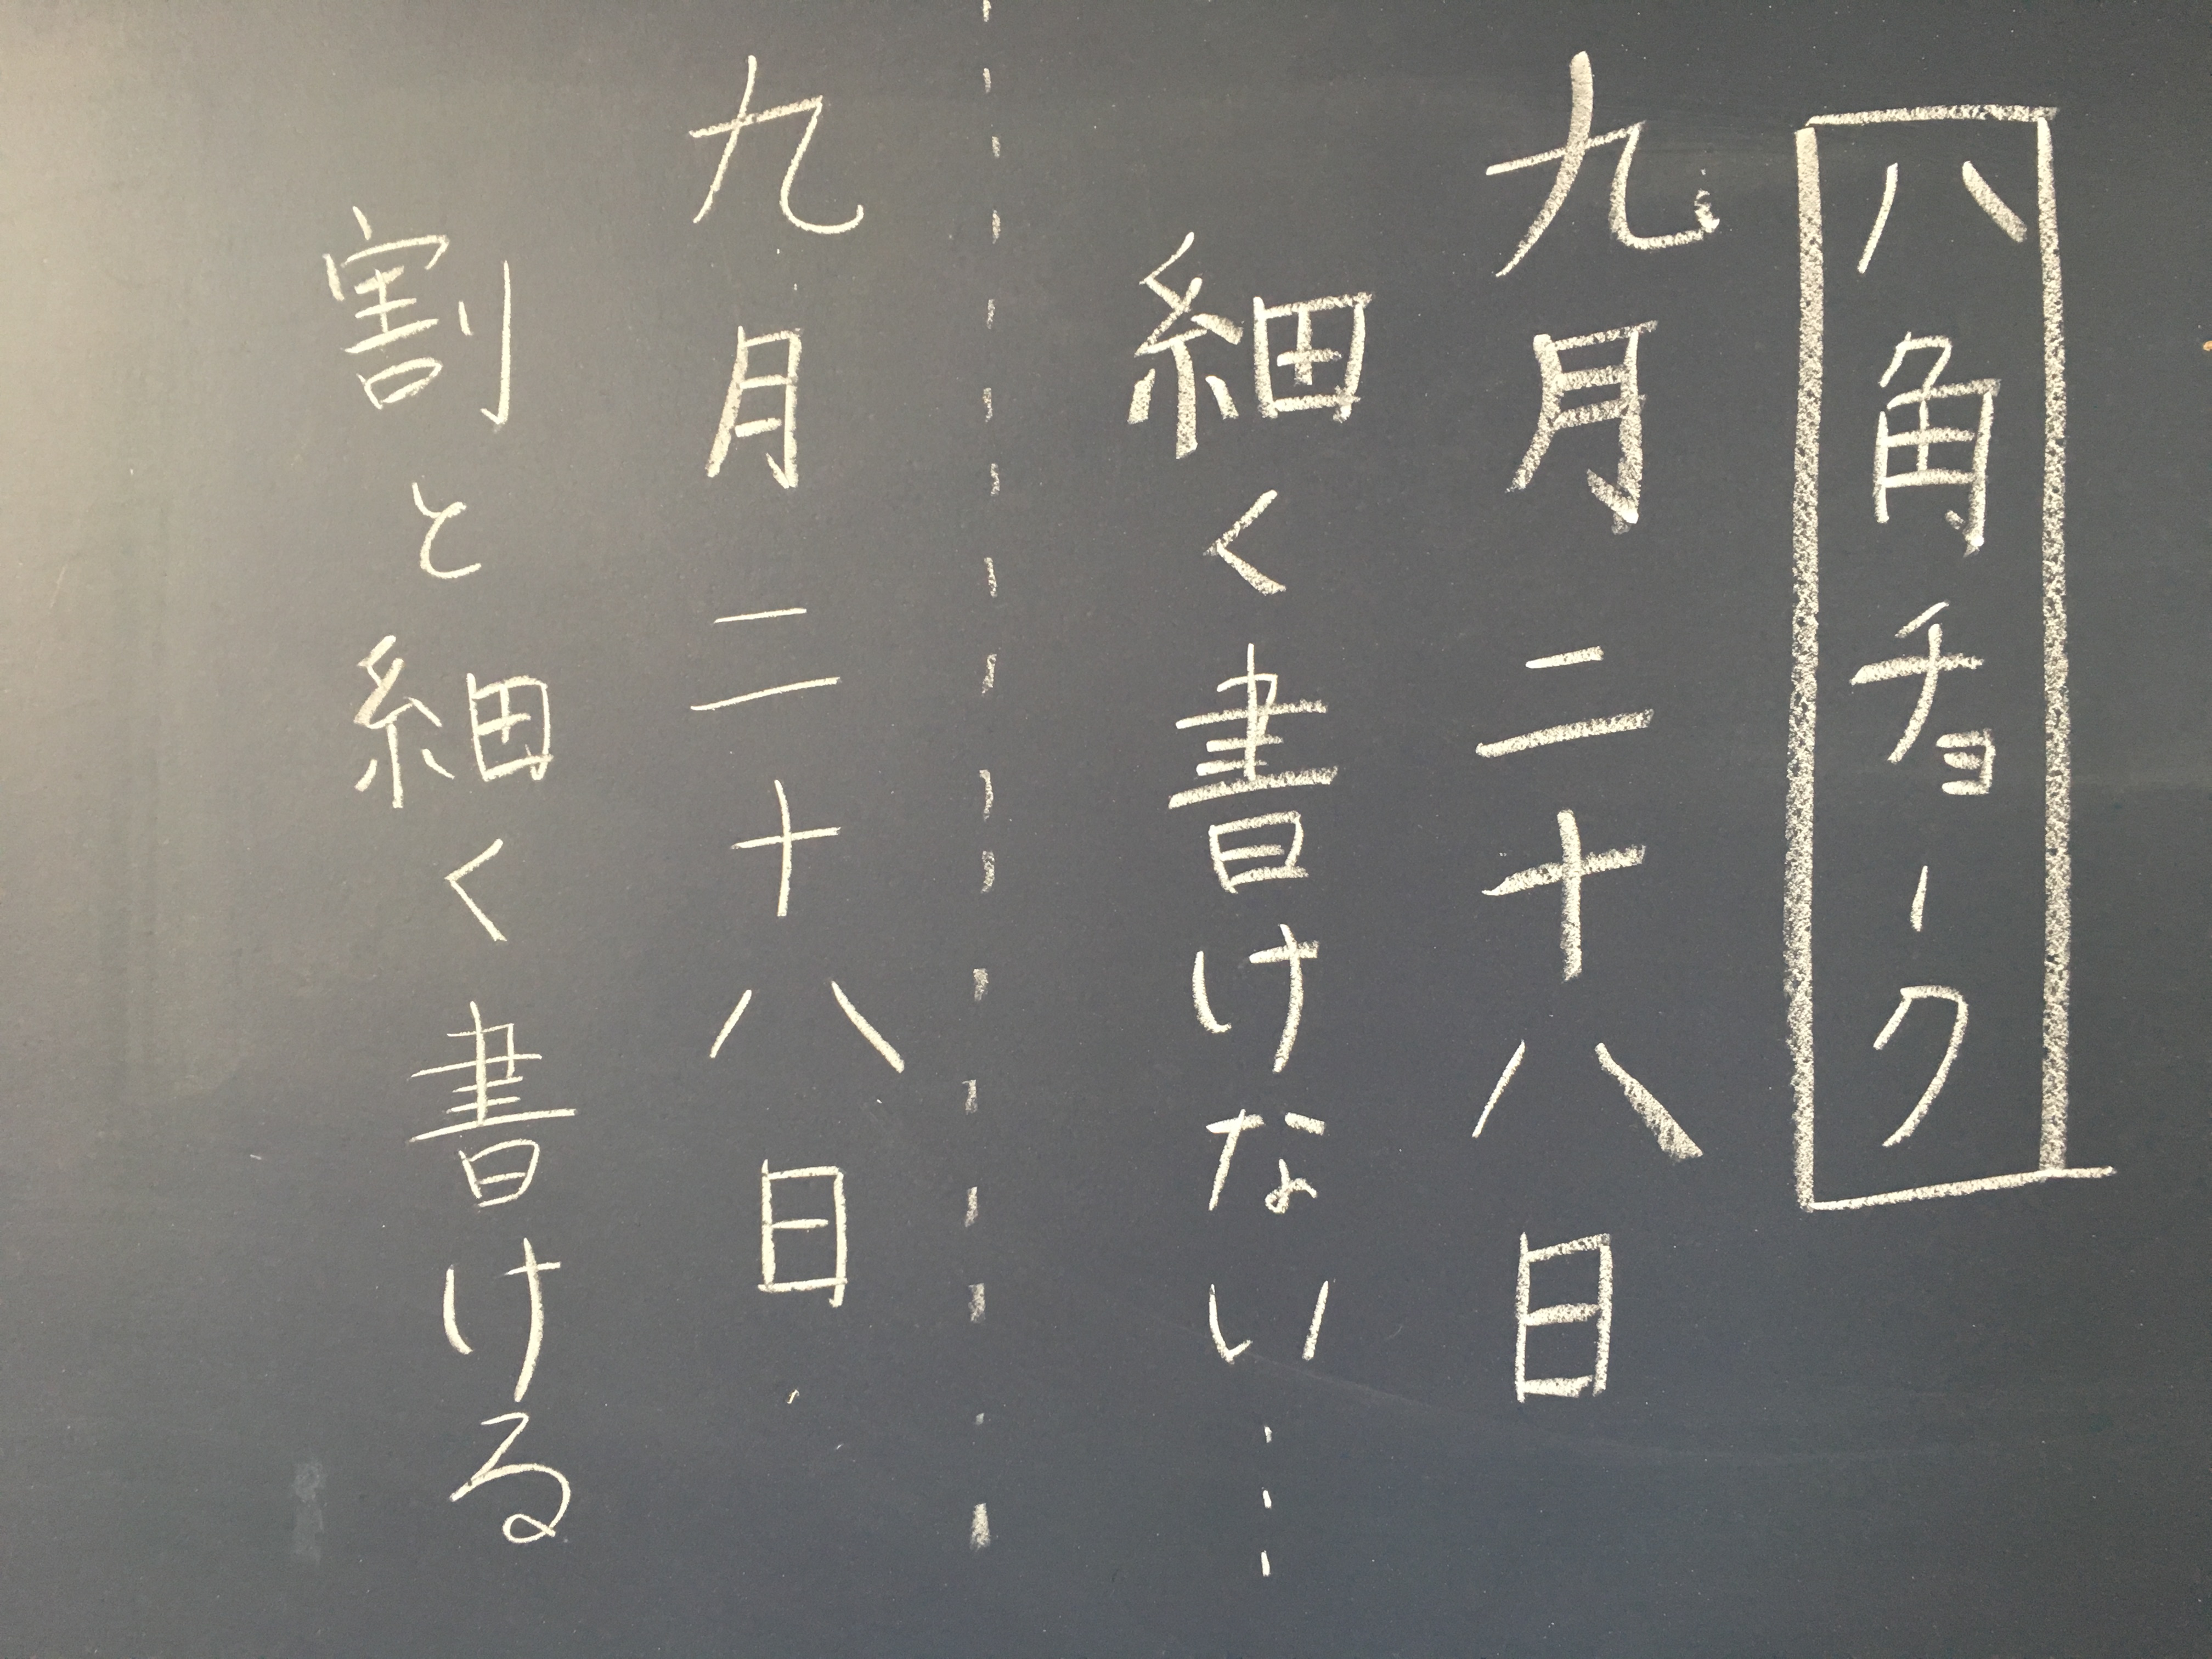 八角チョーク
九月二十八日
細く書けない…
九月二十八日
割と細く書ける